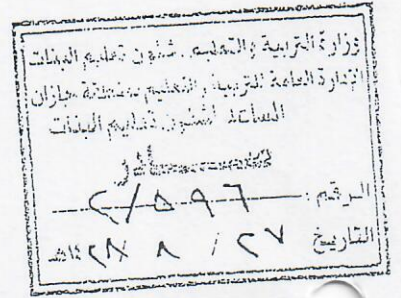 وزارة التربية والتعليم. شئون تعليم البنات
الإدارة العامة للتربية والتعليم بمنطقة جازان
المساعد لشئون تعليم البنات
الرقم: ٢/٥٩٦
التاريخ ٢٧ / ٨ / ١٤٢٨هـ